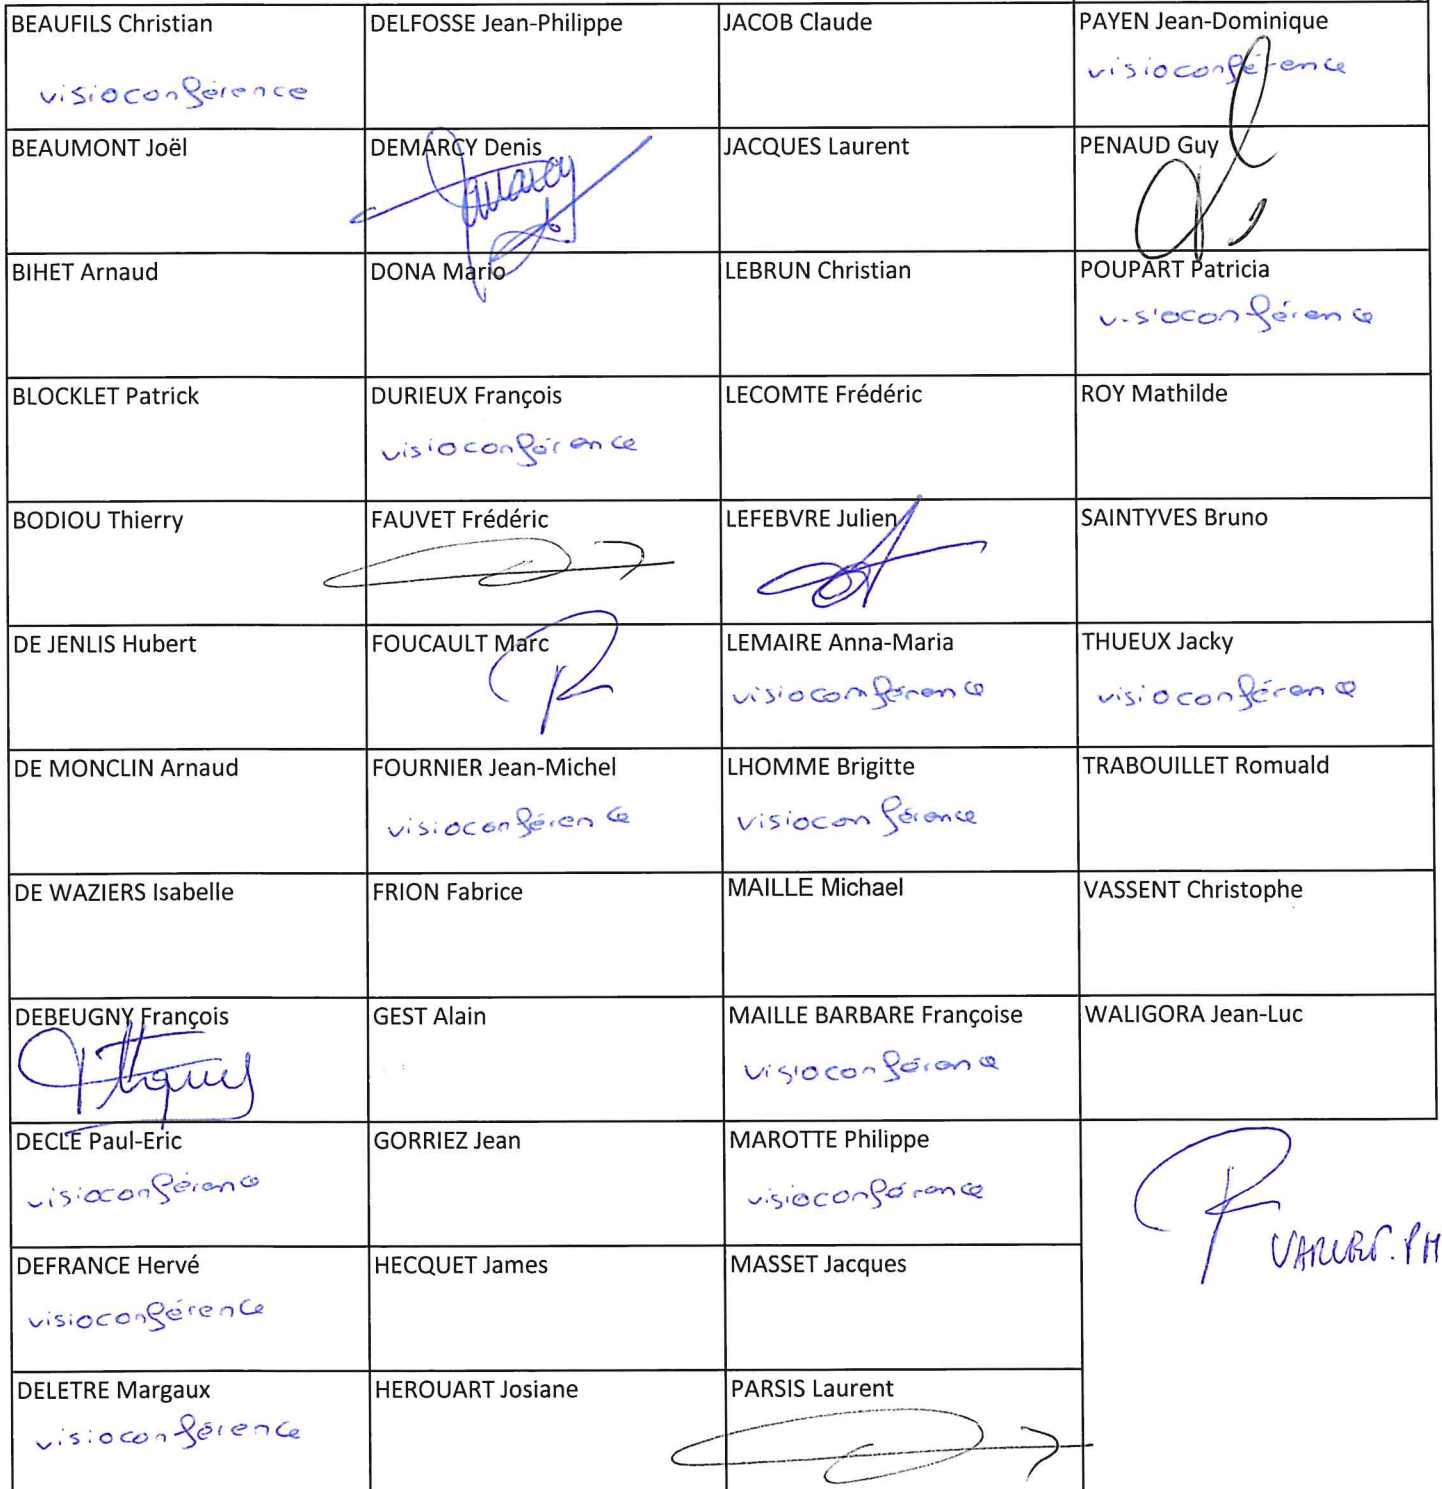 BEAUFILS Christian
visioconférence
DELFOSSE Jean-Philippe
JACOB Claude
PAYEN Jean-Dominique
visioconférence
BEAUMONT Joël
DEMARCY Denis
JACQUES Laurent
PENAUD Guy
BIHET Arnaud
DONA Mario
LEBRUN Christian
POUPART Patricia
visioconférence
BLOCKLET Patrick
DURIEUX François
visioconférence
LECOMTE Frédéric
ROY Mathilde
BODIOU Thierry
FAUVET Frédéric
LEFEBVRE Julien
SAINTYVES Bruno
DE JENLIS Hubert
FOUCAULT Marc
LEMAIRE Anna-Maria
visioconférence
THUEUX Jacky
visioconférence
DE MONCLIN Arnaud
FOURNIER Jean-Michel
visioconférence
LHOMME Brigitte
visioconférence
TRABOUILLET Romuald
DE WAZIERS Isabelle
FRION Fabrice
MAILLE Michael
VASSENT Christophe
DEBEUGNY François
GEST Alain
MAILLE BARBARE Françoise
visioconférence
WALIGORA Jean-Luc
DECLE Paul-Eric
visioconférence
GORRIEZ Jean
MAROTTE Philippe
visioconférence
DEFRANCE Hervé
visioconférence
HECQUET James
MASSET Jacques
DELETRE Margaux
visioconférence
HEROUART Josiane
PARSIS Laurent